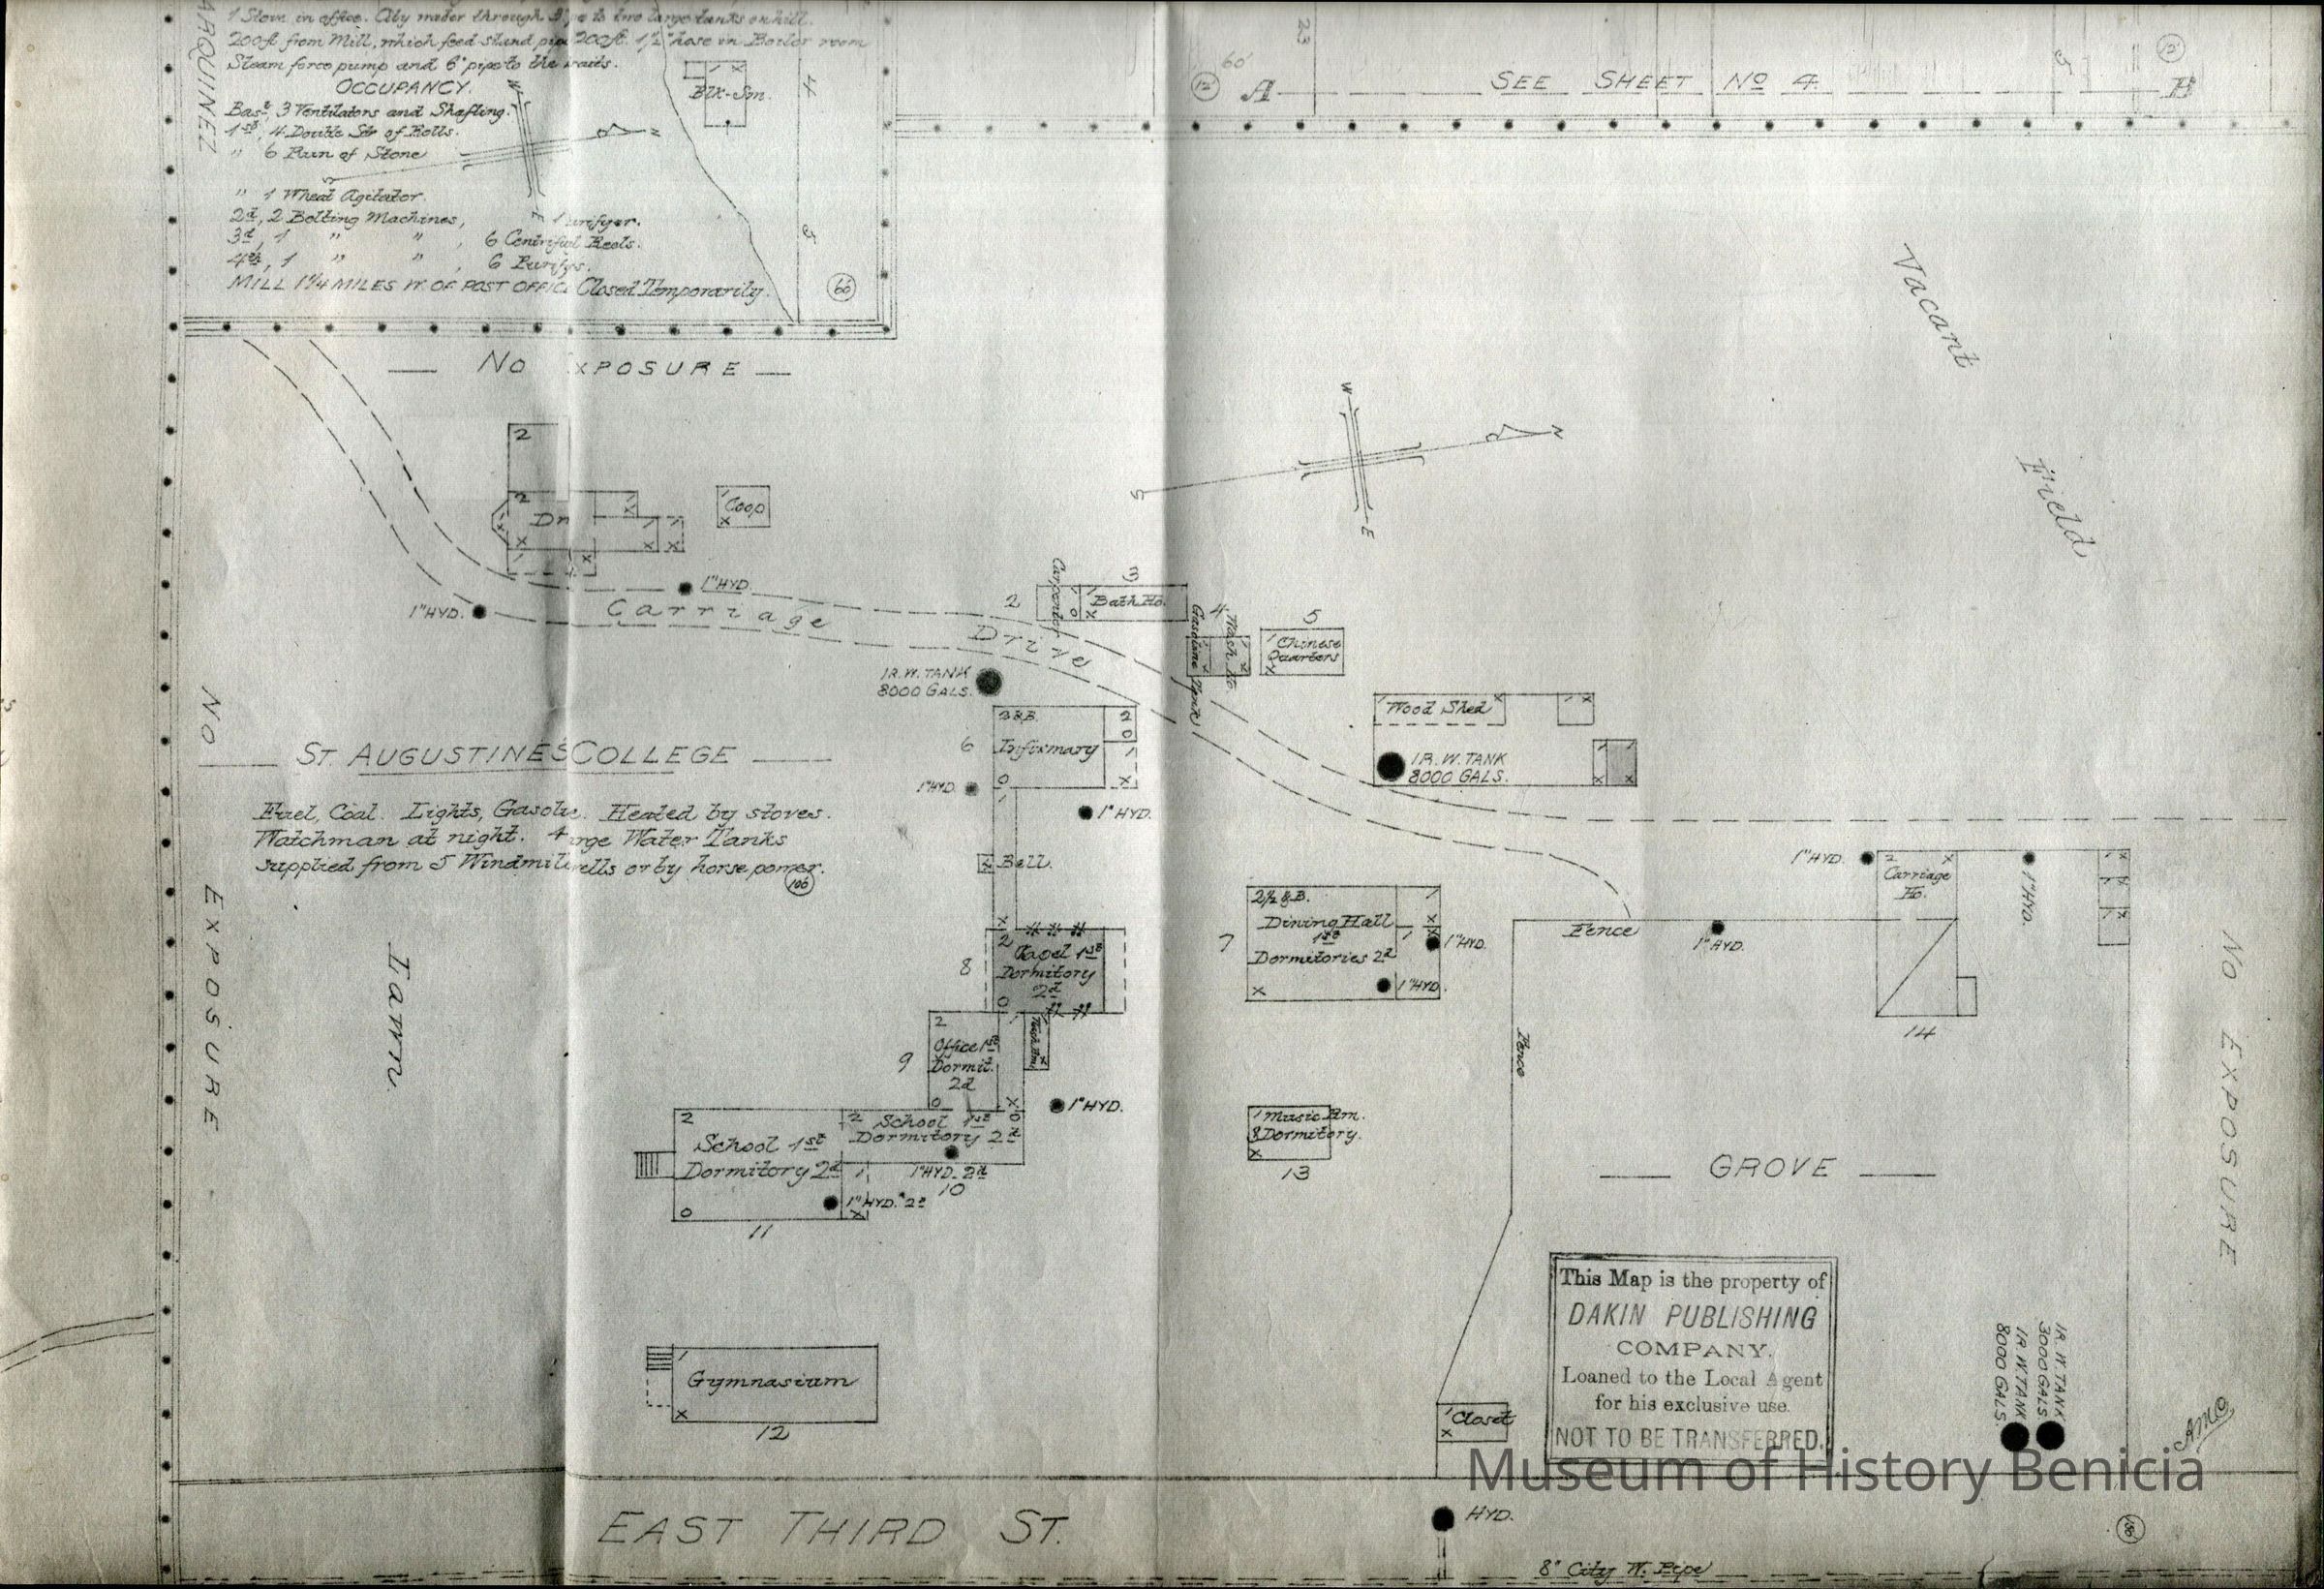 1 Stove in office. City water through pipe to two large tanks on hill.
200 ft from Mill, which feed stand pipe 200 ft. 1½" hose in Boiler room
Steam force pump and 6" pipe to the
OCCUPANCY.
Bast, 3 Ventilators and Shafting.
1st, 4 Double Str of Rolls.
" 6 Run of Stone
" 1 Wheat Agitator.
2d, 2 Bolting Machines, 1
3d, 1 " " , 6 Reels.
4th, 1 " " , 6
MILL 1¼ MILES W. OF POST OFFIC Closed Temporarily.
66
ARQUINEZ
Blk-Sm.
4
5
W
N
S
E
23
60'
12'
A
SEE SHEET No 4.
B
5
12'
Vacant
Field
NO XPOSURE
W
N
S
E
2
2
Dn
Coop
1" HYD.
1" HYD.
Carriage
Drive
2
Carpenter
3
Bath Ho.
4
Gasoline Tank
Wash Ho.
5
Chinese
Quarters
1R. W. TANK
8000 GALS.
Wood Shed
1R. W. TANK
8000 GALS.
ST. AUGUSTINE'S COLLEGE
Fuel, Coal. Lights, Gasolie. Heated by stoves.
Watchman at night. 4 rge Water Tanks
supplied from 5 Windmil wells or by horse power.
106
NO EXPOSURE
Lawn
6
2&B.
Infirmary
1" HYD.
1" HYD.
Ball.
8
2
Capel 1st
Dormitory
2d
9
2
Office 1st
Dormit.
2d
1" HYD.
2
School 1st
Dormitory 2d
1" HYD. 2d
10
2
School 1st
Dormitory 2d
1" HYD. 2d
11
Gymnasium
12
7
2½ & B.
Dining Hall
1st
Dormitories 2d
1" HYD.
1" HYD.
Music Rm.
& Dormitory.
13
Fence
Fence
1" HYD.
1" HYD.
2
Carriage
Ho.
1" HYD.
14
GROVE
NO EXPOSURE
This Map is the property of
DAKIN PUBLISHING
COMPANY.
Loaned to the Local Agent
for his exclusive use.
NOT TO BE TRANSFERRED.
1R. W. TANK
3000 GALS
1R W. TANK
8000 GALS.
Closet
Museum of History Benicia
EAST THIRD ST.
HYD.
8" City W. Pipe